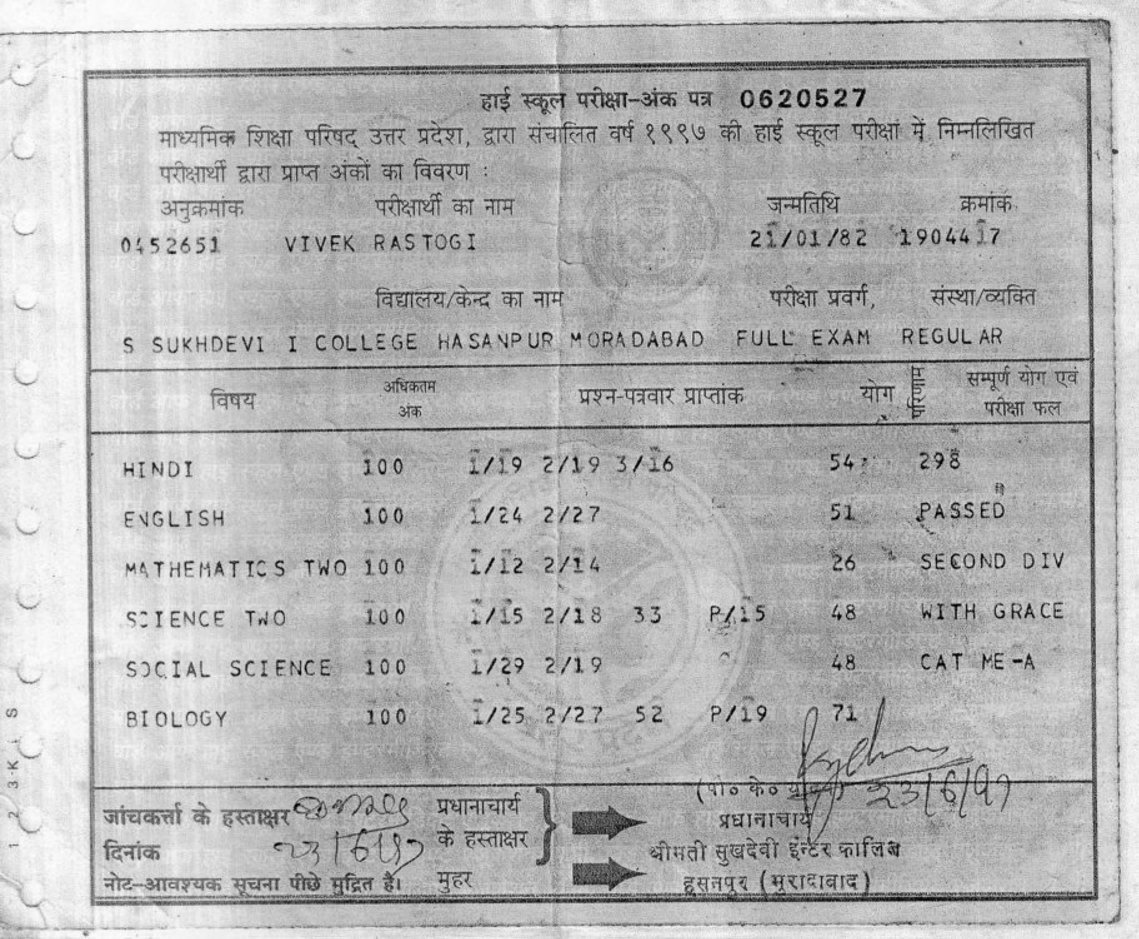 हाई स्कूल परीक्षा-अंक पत्र 0620527
माध्यमिक शिक्षा परिषद् उत्तर प्रदेश, द्वारा संचालित वर्ष १९९७ की हाई स्कूल परीक्षा में निम्नलिखित
परीक्षार्थी द्वारा प्राप्त अंकों का विवरण :
अनुक्रमांक परीक्षार्थी का नाम जन्मतिथि क्रमांक
0452651 VIVEK RASTOGI 21/01/82 1904417
विद्यालय/केन्द का नाम परीक्षा प्रवर्ग, संस्था/व्यक्ति
S SUKHDEVI I COLLEGE HASANPUR MORADABAD FULL EXAM REGULAR
विषय अधिकतम अंक प्रश्न-पत्रवार प्राप्तांक योग परिणाम सम्पूर्ण योग एवं परीक्षा फल
HINDI 100 1/19 2/19 3/16 54 298
ENGLISH 100 1/24 2/27 51 PASSED
MATHEMATICS TWO 100 1/12 2/14 26 SECOND DIV
SCIENCE TWO 100 1/15 2/18 33 P/15 48 WITH GRACE
SOCIAL SCIENCE 100 1/29 2/19 48 CAT ME-A
BIOLOGY 100 1/25 2/27 52 P/19 71
(पी० के० 23/6/97
जांचकर्त्ता के हस्ताक्षर प्रधानाचार्य के हस्ताक्षर प्रधानाचार्य
दिनांक 23/6/97 श्रीमती सुखदेवी इन्टर कालिज
नोट-आवश्यक सूचना पीछे मुद्रित है। मुहर हसनपुर (मुरादाबाद)